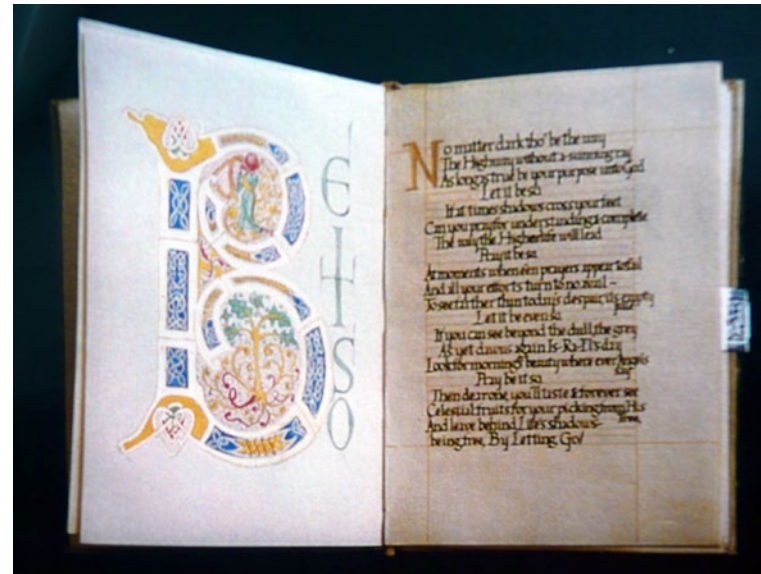 BE IT SO
No matter dark tho' be the way
The Highway without a sunning ray
As long as true be your purpose unto God
Let it be so
If at times shadows cross your feet
Can you pray for understanding complete
The way the Higher life will lead
Pray it be so
At moments when e'en prayers appear to fail
And all your efforts turn to no avail –
To see farther than today's despair, its empty
Let it be even so
If you can see beyond the dull, the grey
As yet dawns again Is-Ra-El's day
Look for morning's beauty where ever Angels
Pray be it so
Then dear one, you'll taste & forever see
Celestial fruits for your picking from His
Tree,
And leave behind Life's shadows–
being free, By Letting Go!